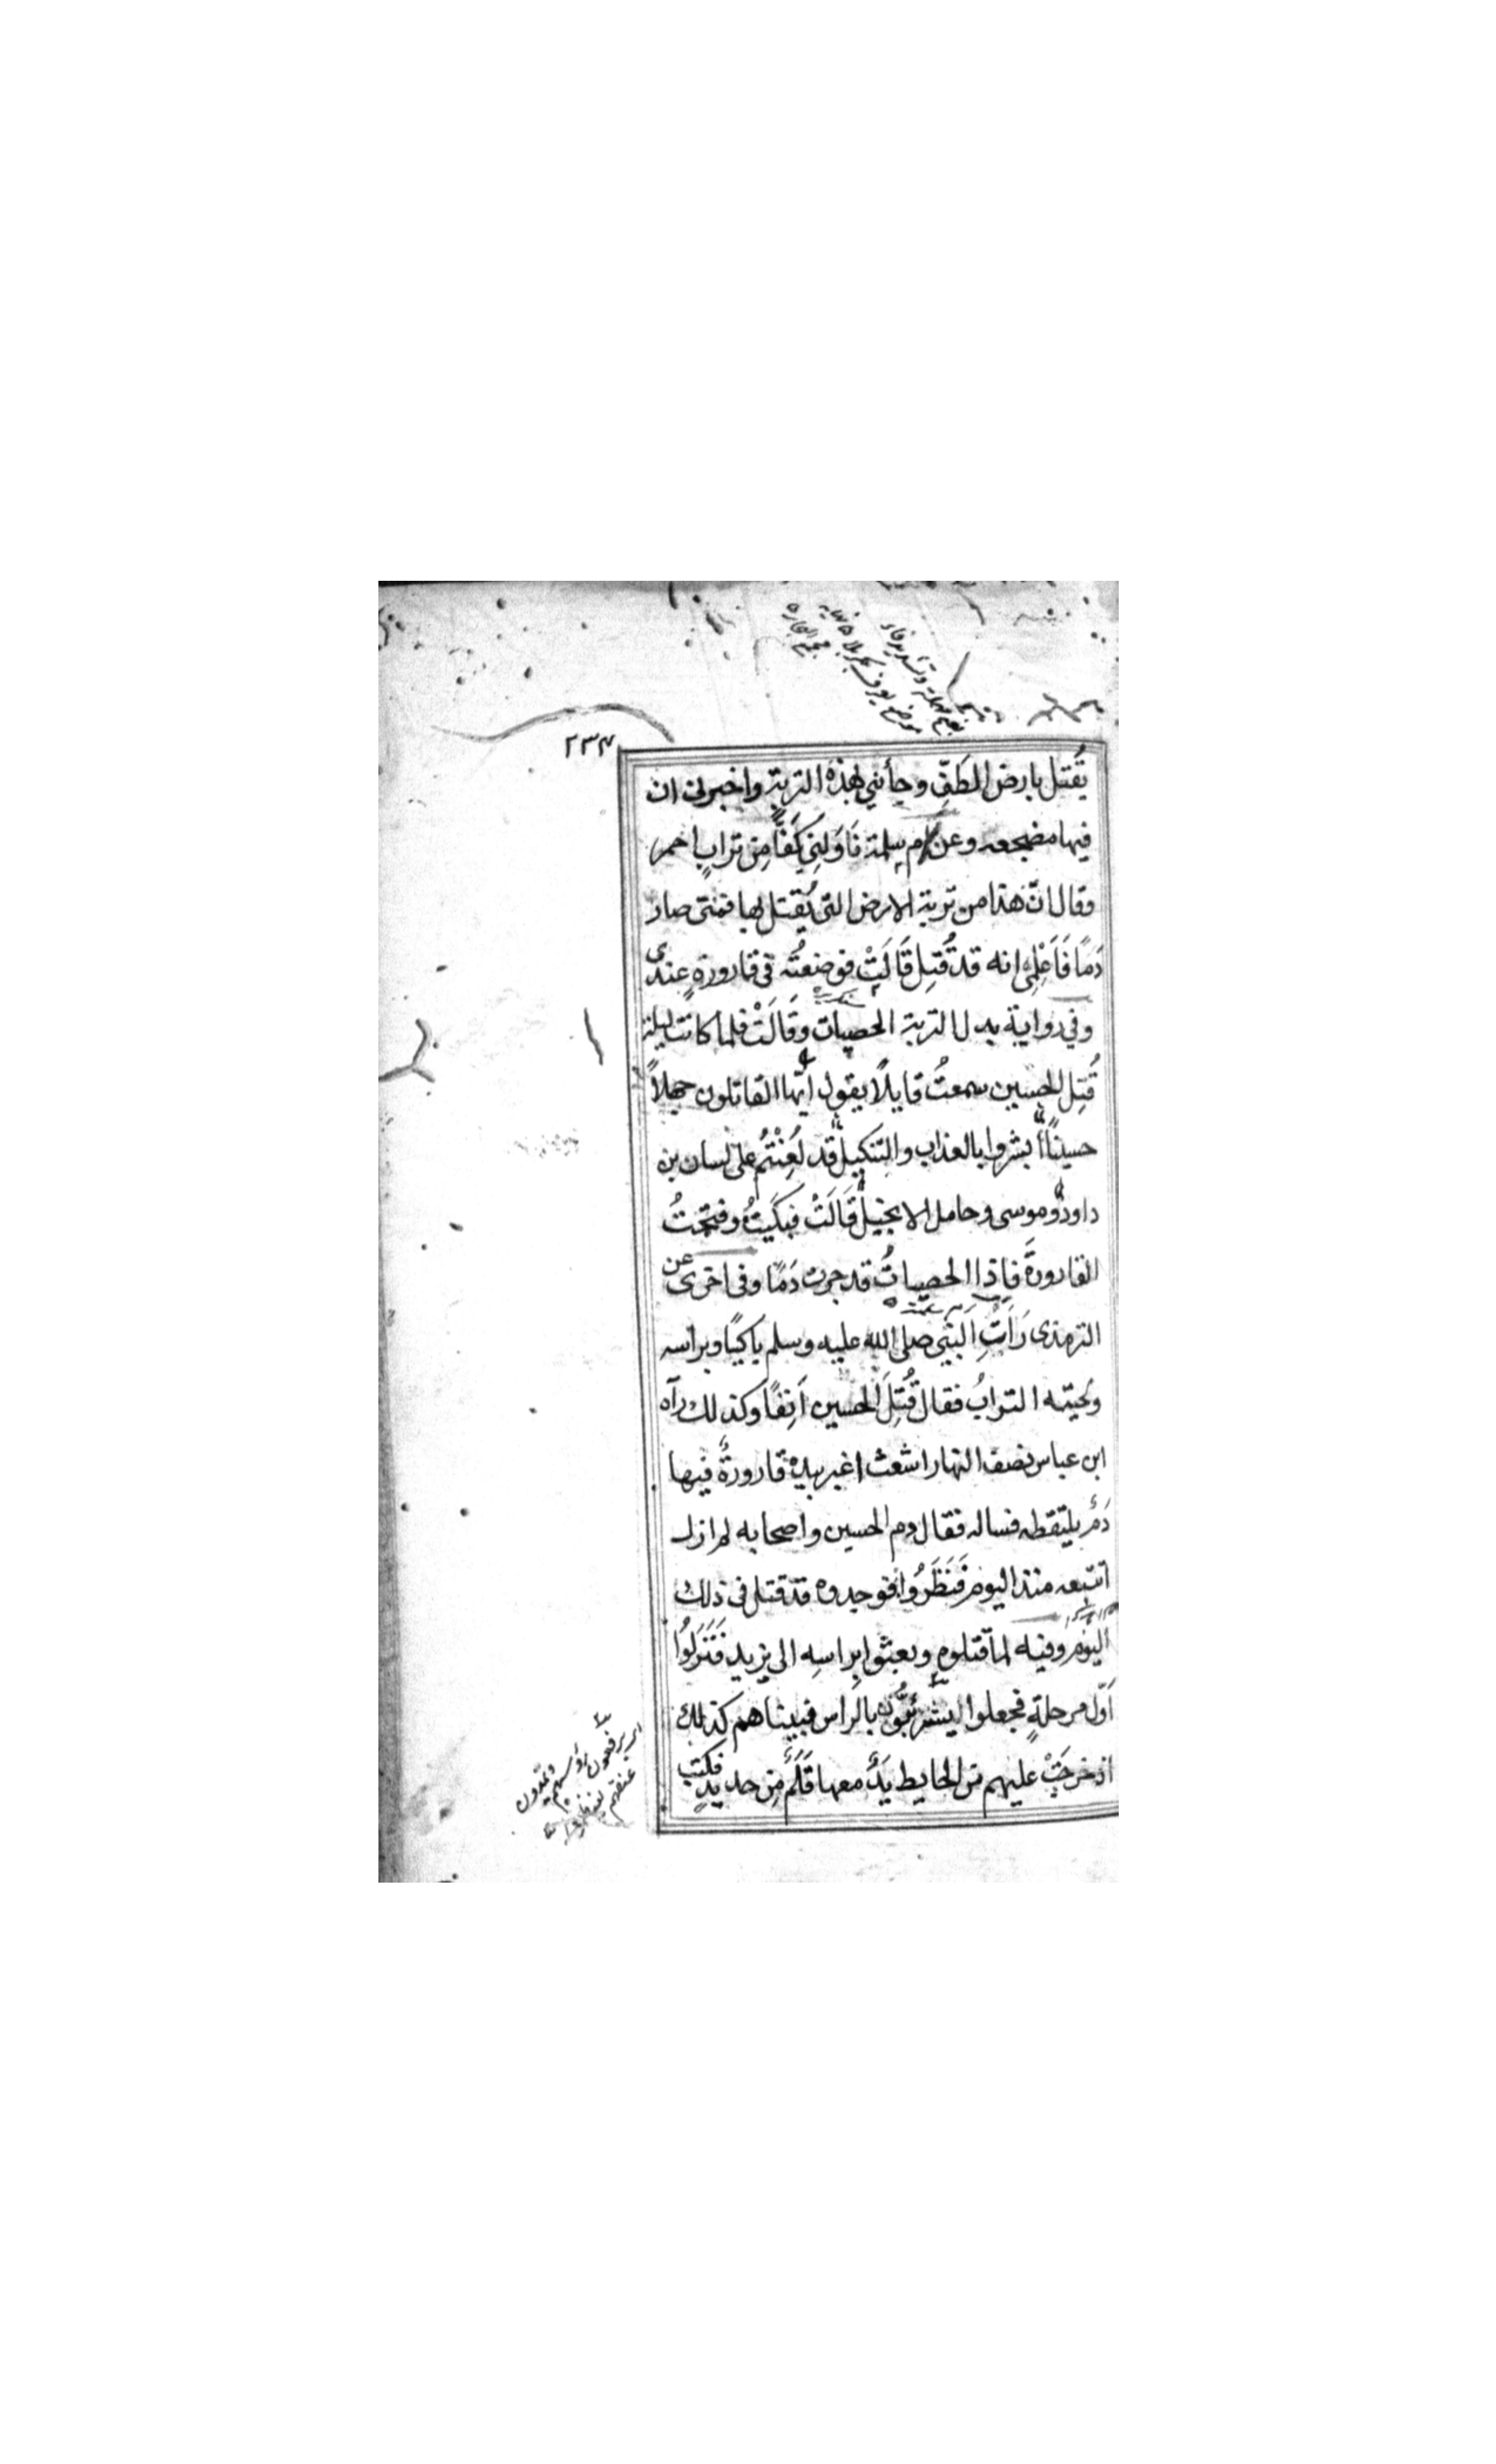 ٢٣٤
يُقتل بارض الطَفّ وجأنني بهذه التربة واخبرني ان
فيها مضجعه وعن ام سلمة نَاوَلَنِي كَفًّا مِن ترابٍ احمر
وقال انّ هذا من تربة الارض التى يُقتل بها فمتى صار
دَمًا فَاعْلِمى انه قد قُتِل قَالَتْ فوضعتُه فى قارورةٍ عندى
وفي رواية بدل التربة الحصيات وقَالَتْ فلما كانت ليلة
قُتِل الحسين سمعتُ قايلًا يقول ايّها القاتلون جهلاً
حسينًا ابشروا بالعذاب والتنكيل قد لُعِنْتُم على لسان بن
داود وموسى وحامل الانجيل قَالَتْ فبكَيتُ وفتحتُ
القارورةَ فاِذا الحصياتُ قد جرت دَمًا وفى اخرى عن
الترمذى رَاَتِ النبي صلى الله عليه وسلم باكيًا وبراسه
ولحيته الترابُ فقال قُتِلَ الحسين اَنِفًا وكذلك رآه
ابن عباس نصف النهار اشعث اغبر بيده قارورةٌ فيها
دَمٌ يلتقطه فساله فقال دم الحسين واصحابه لم ازل
اتتبعه منذ اليوم فَنَظَرُوا فوجدوه قد قتل فى ذلك
اليوم وفيه لما قتلوه وبعثوا براسِه الى يزيد فَنَزَلُوا
اَوّل مرحلةٍ فجعلوا يشرئبّون بالراس فبينا هم كذلك
اذ خرجَتْ عليهم من الحايط يَدٌ معها قَلَمٌ مِن حديدٍ فكتب
يرفعون رؤسهم ويمدّون
عنقهم